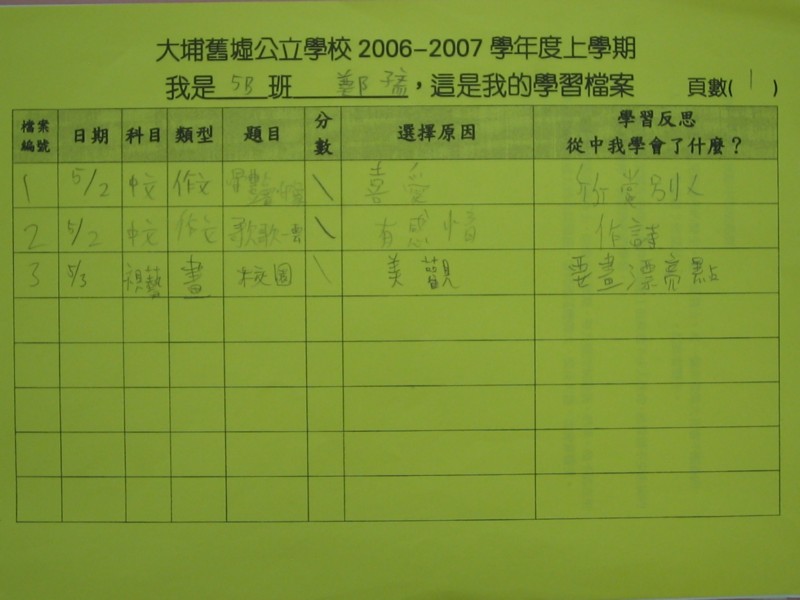 大埔舊墟公立學校 2006-2007 學年度上學期
我是 5B 班 鄭 ，這是我的學習檔案 頁數( 1 )
檔案編號 日期 科目 類型 題目 分數 選擇原因 學習反思 從中我學會了什麼？
1 5/2 中文 作文 \ 喜愛 欣賞別人
2 5/2 中文 作文 歌歌 \ 有感情 作詩
3 5/3 視藝 畫 校園 \ 美觀 要畫漂亮點